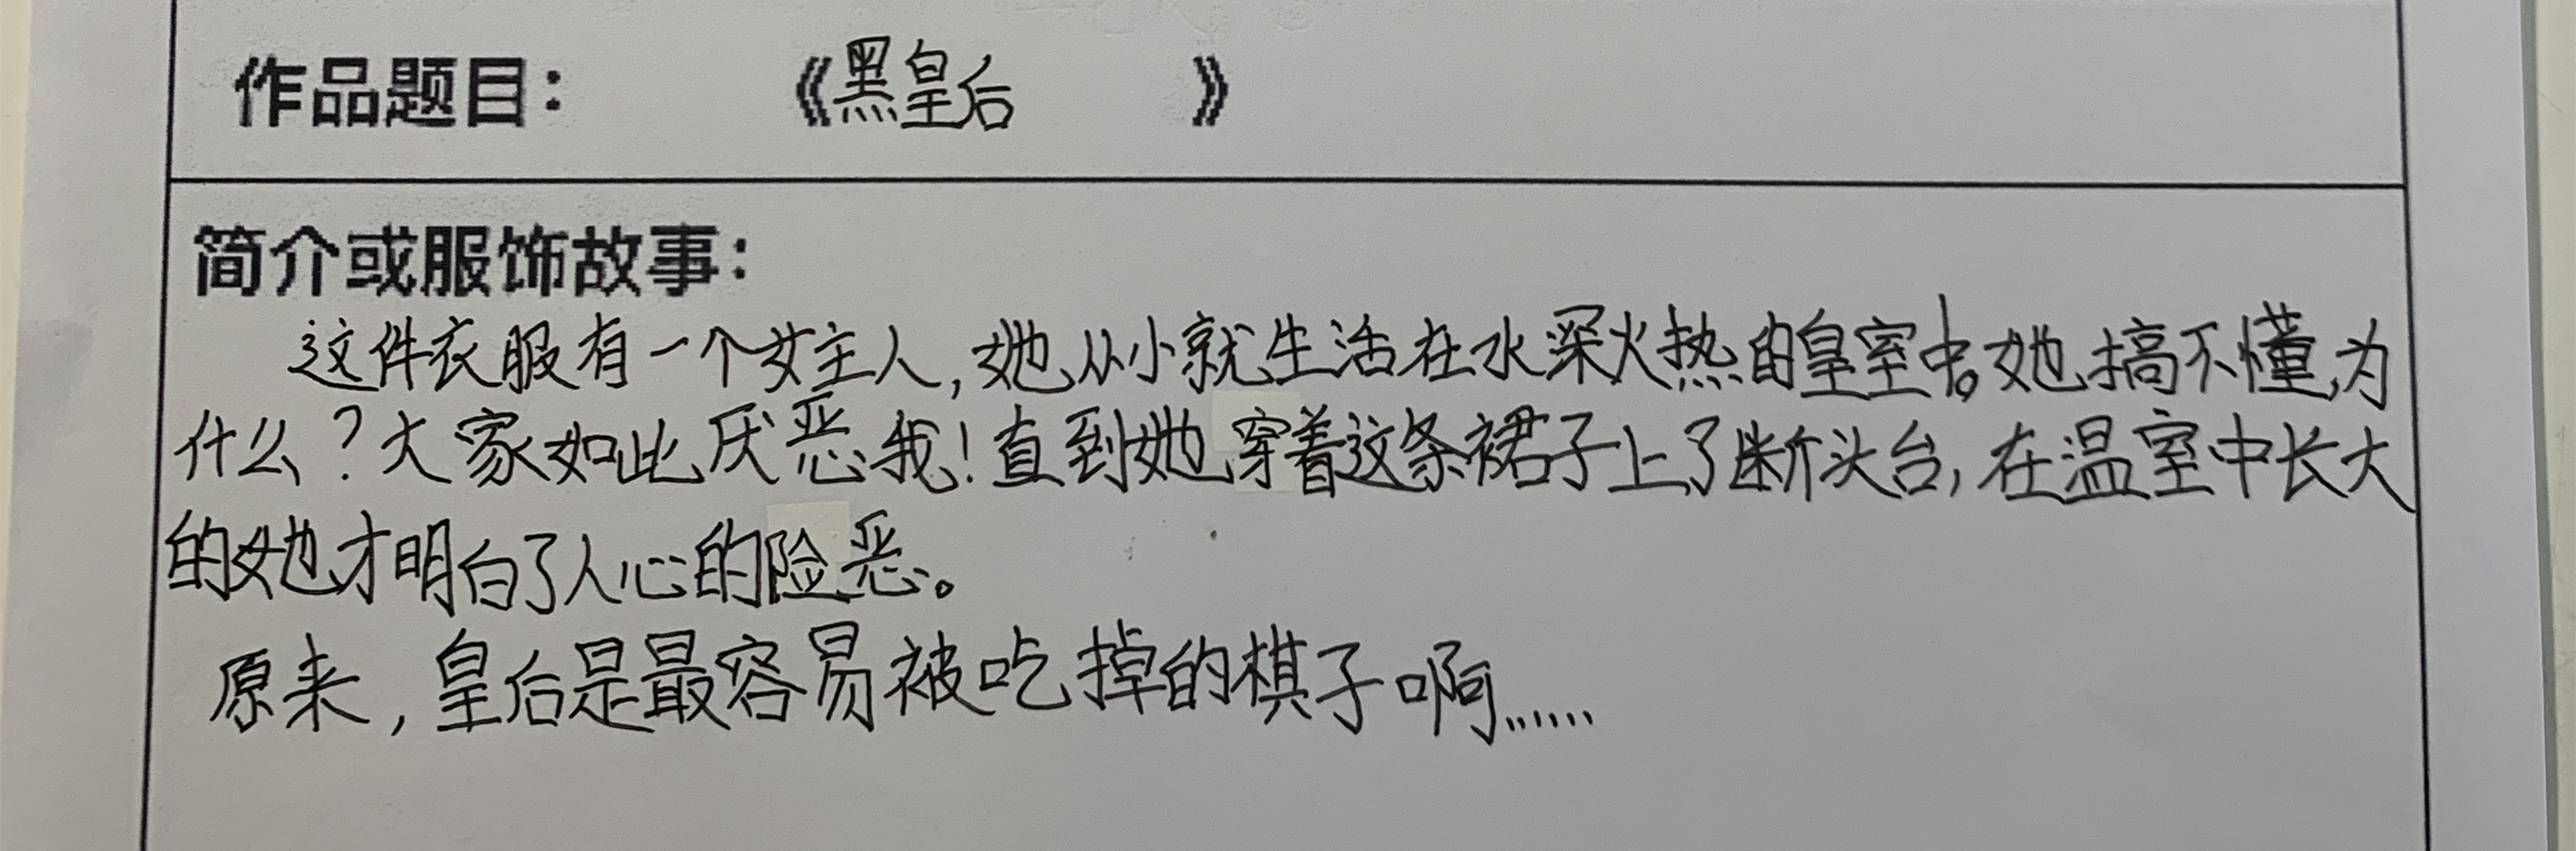 作品题目： 《黑皇后 》
简介或服饰故事：
这件衣服有一个女主人，她从小就生活在水深火热的皇室中。她搞不懂，为
什么？大家如此厌恶我！直到她穿着这条裙子上了断头台，在温室中长大
的她才明白了人心的险恶。
原来，皇后是最容易被吃掉的棋子啊……